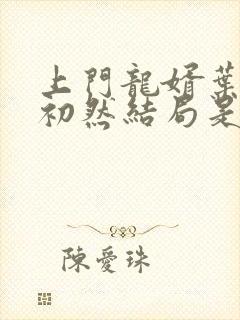 上門龍婿葉
初然結局是
陳愛珠